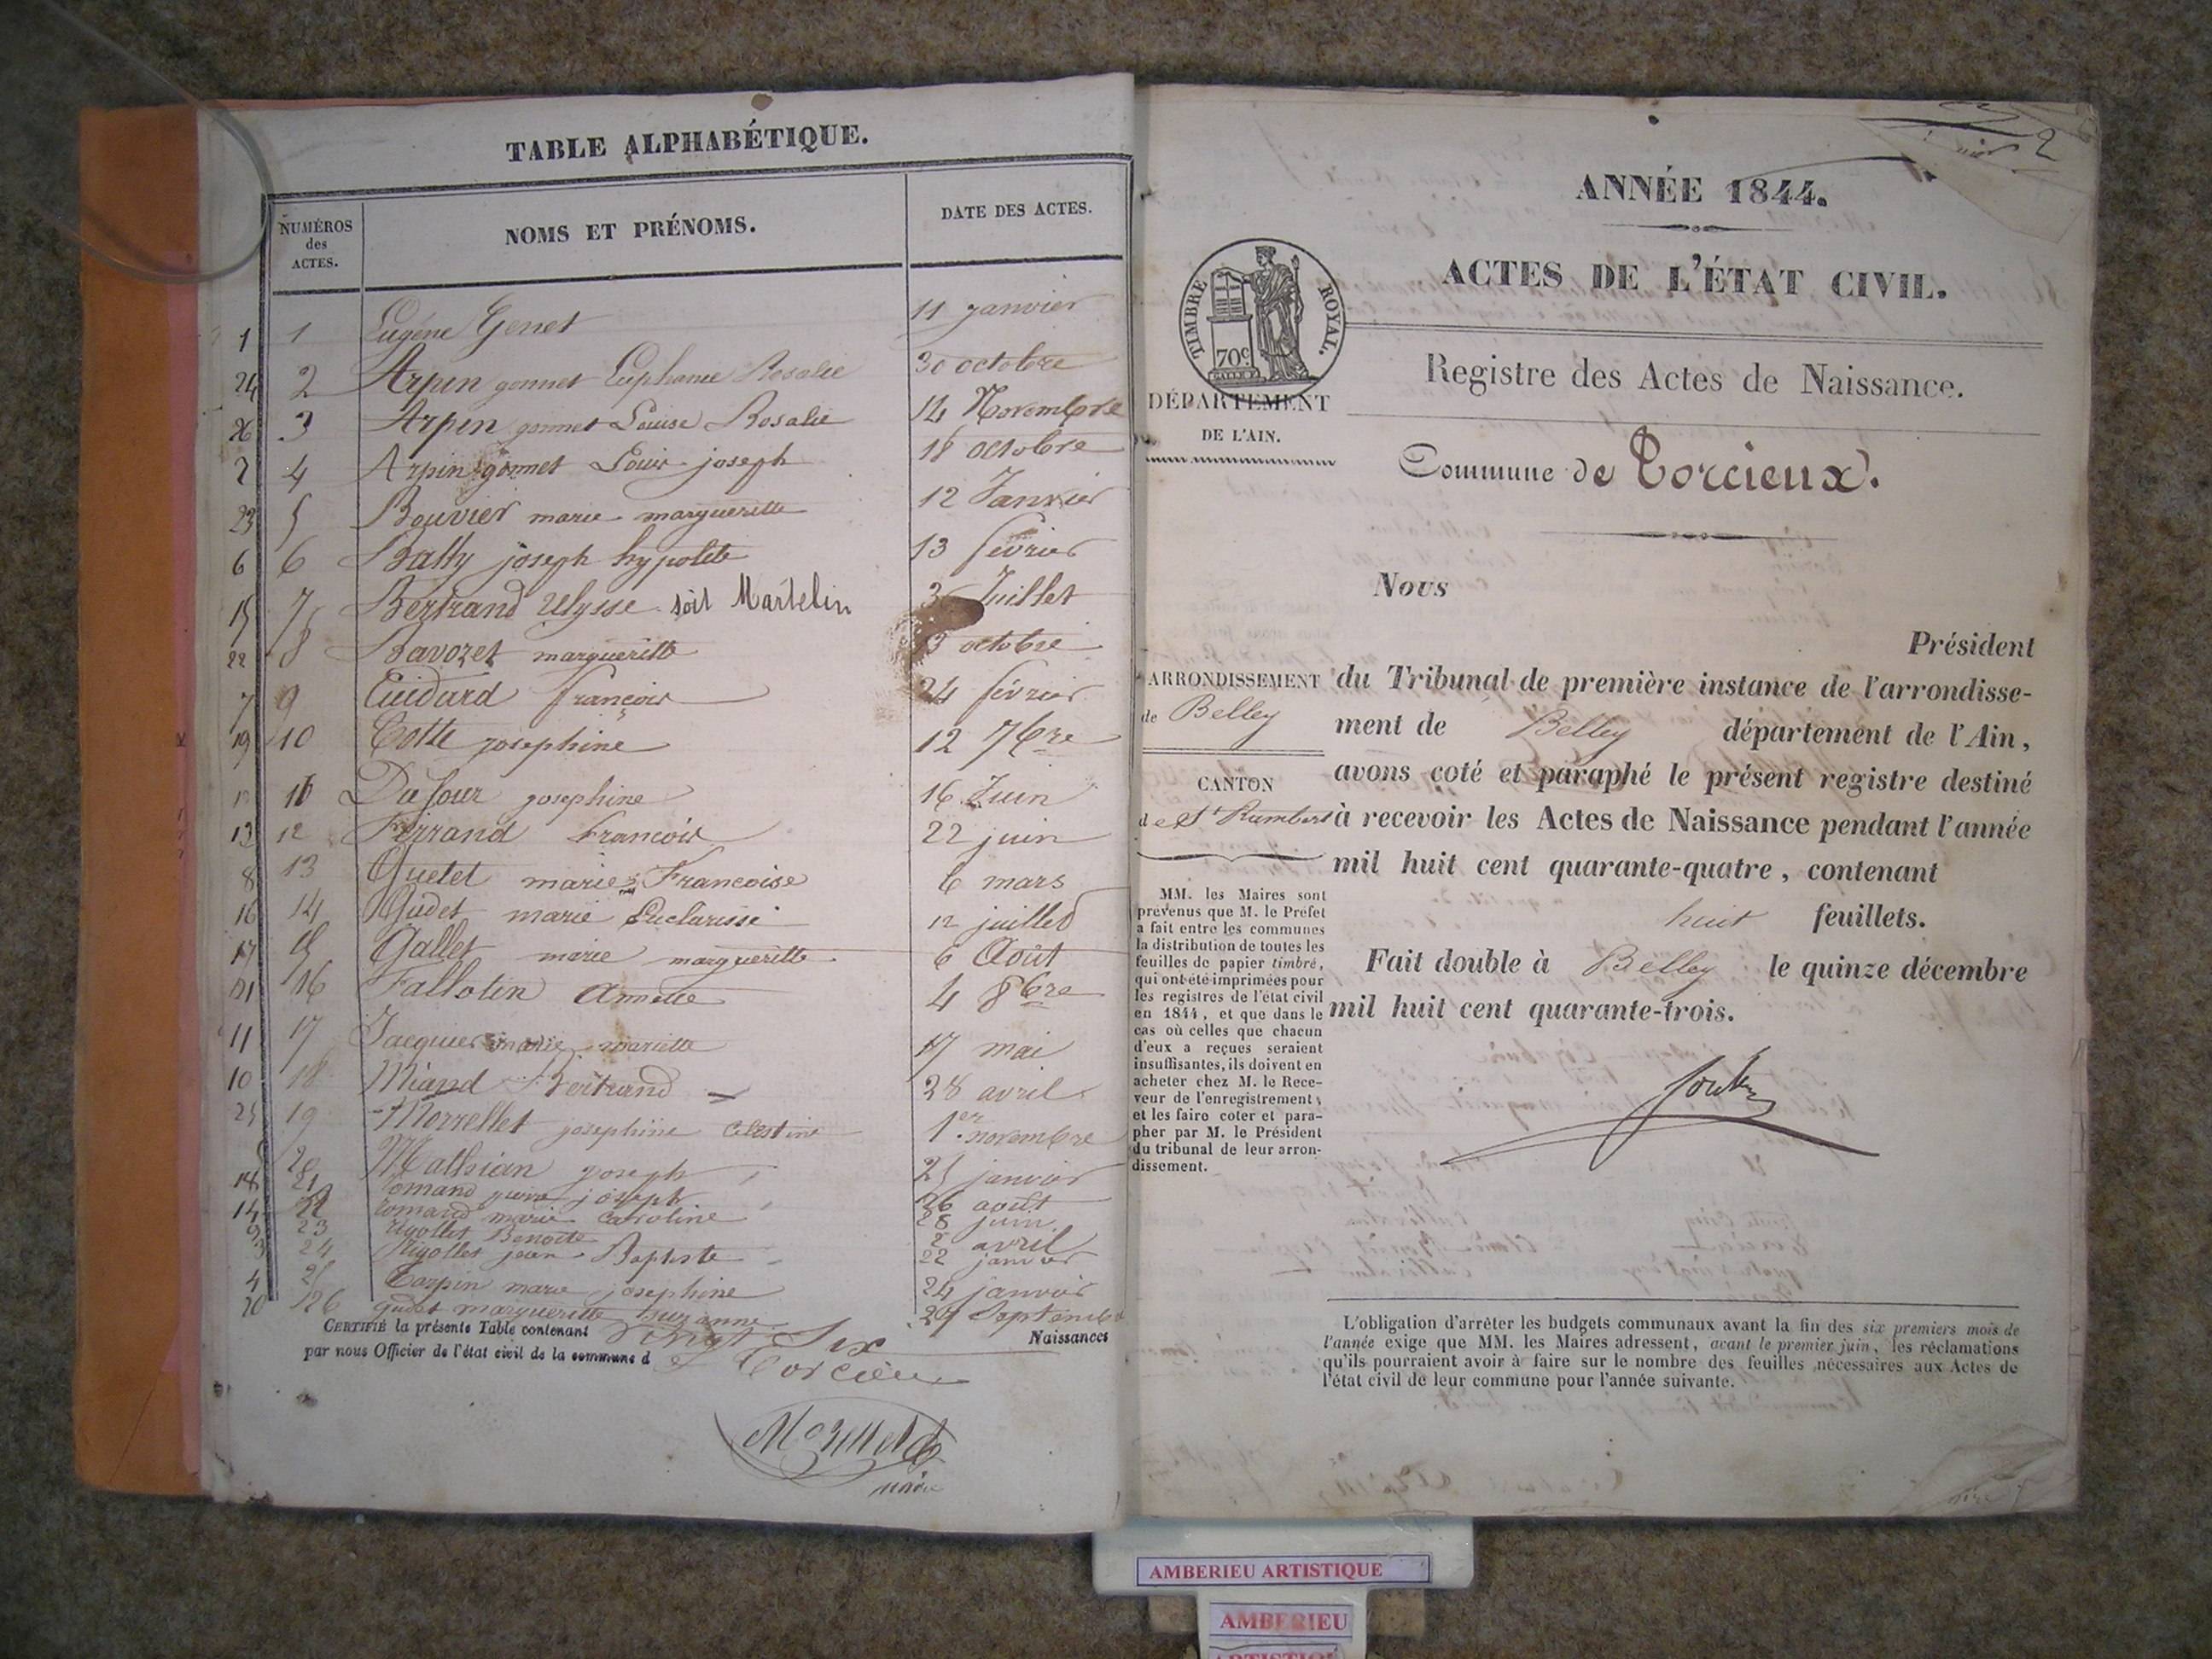 TABLE ALPHABÉTIQUE.
NUMÉROS des ACTES.
NOMS ET PRÉNOMS.
DATE DES ACTES.
1 1 Eugéne Genet 11 janvier
24 2 Arpin gonnet Euphanie Rosalie 30 octobre
26 3 Arpin gonnet Louise Rosalie 14 Novembre
2 4 Arpin gonnet Louis joseph 18 octobre
23 5 Bouvier marie margueritte 12 Janvier
6 6 Batty joseph hypolite 13 février
15 7 Bertrand Ulysse soit Martelin 3 Juillet
22 8 Bavozet margueritte 13 octobre
7 9 Cuidard françois 24 février
19 10 Cotte josephine 12 7bre
11 Dufour josephine 16 Juin
13 12 Ferrand francois 22 juin
8 13 Guelet marie Francoise 6 mars
16 14 Gudet marie 12 juillet
17 15 Gallet marie margueritte 6 Août
21 16 Fallotin 4 8bre
11 17 Jacquier mariette 17 mai
10 18 Miand Bertrand 28 avril
25 19 Morrellet josephine Celestine 1er novembre
20 Mathian joseph 25 janvier
18 21 Comand joseph 26 août
14 22 Comand marie Caroline 28 juin
9 23 Rigollet Benoite 2 avril
3 24 Rigollet jean Baptiste 22 janvier
4 25 Carpin marie josephine 24 janvier
20 26 gudet margueritte suzanne 29 Septembre
CERTIFIÉ la présente Table contenant vingt Six Naissances
par nous Officier de l'état civil de la commune d e Torcieu
maire
ANNÉE 1844.
ACTES DE L'ÉTAT CIVIL.
TIMBRE ROYAL.
70c
Registre des Actes de Naissance.
DÉPARTEMENT
DE L'AIN.
Commune de Torcieux.
Nous
Président
du Tribunal de première instance de l'arrondisse-
ment de Belley département de l'Ain,
avons coté et paraphé le présent registre destiné
à recevoir les Actes de Naissance pendant l'année
mil huit cent quarante-quatre, contenant
huit feuillets.
Fait double à Belley le quinze décembre
mil huit cent quarante-trois.
ARRONDISSEMENT
de Belley
CANTON
de St Rambert
MM. les Maires sont
prévenus que M. le Préfet
a fait entre les communes
la distribution de toutes les
feuilles de papier timbré,
qui ont été imprimées pour
les registres de l'état civil
en 1844, et que dans le
cas où celles que chacun
d'eux a reçues seraient
insuffisantes, ils doivent en
acheter chez M. le Rece-
veur de l'enregistrement,
et les faire coter et para-
pher par M. le Président
du tribunal de leur arron-
dissement.
L'obligation d'arrêter les budgets communaux avant la fin des six premiers mois de
l'année exige que MM. les Maires adressent, avant le premier juin, les réclamations
qu'ils pourraient avoir à faire sur le nombre des feuilles nécessaires aux Actes de
l'état civil de leur commune pour l'année suivante.
AMBERIEU ARTISTIQUE
AMBERIEU
ARTISTIQUE